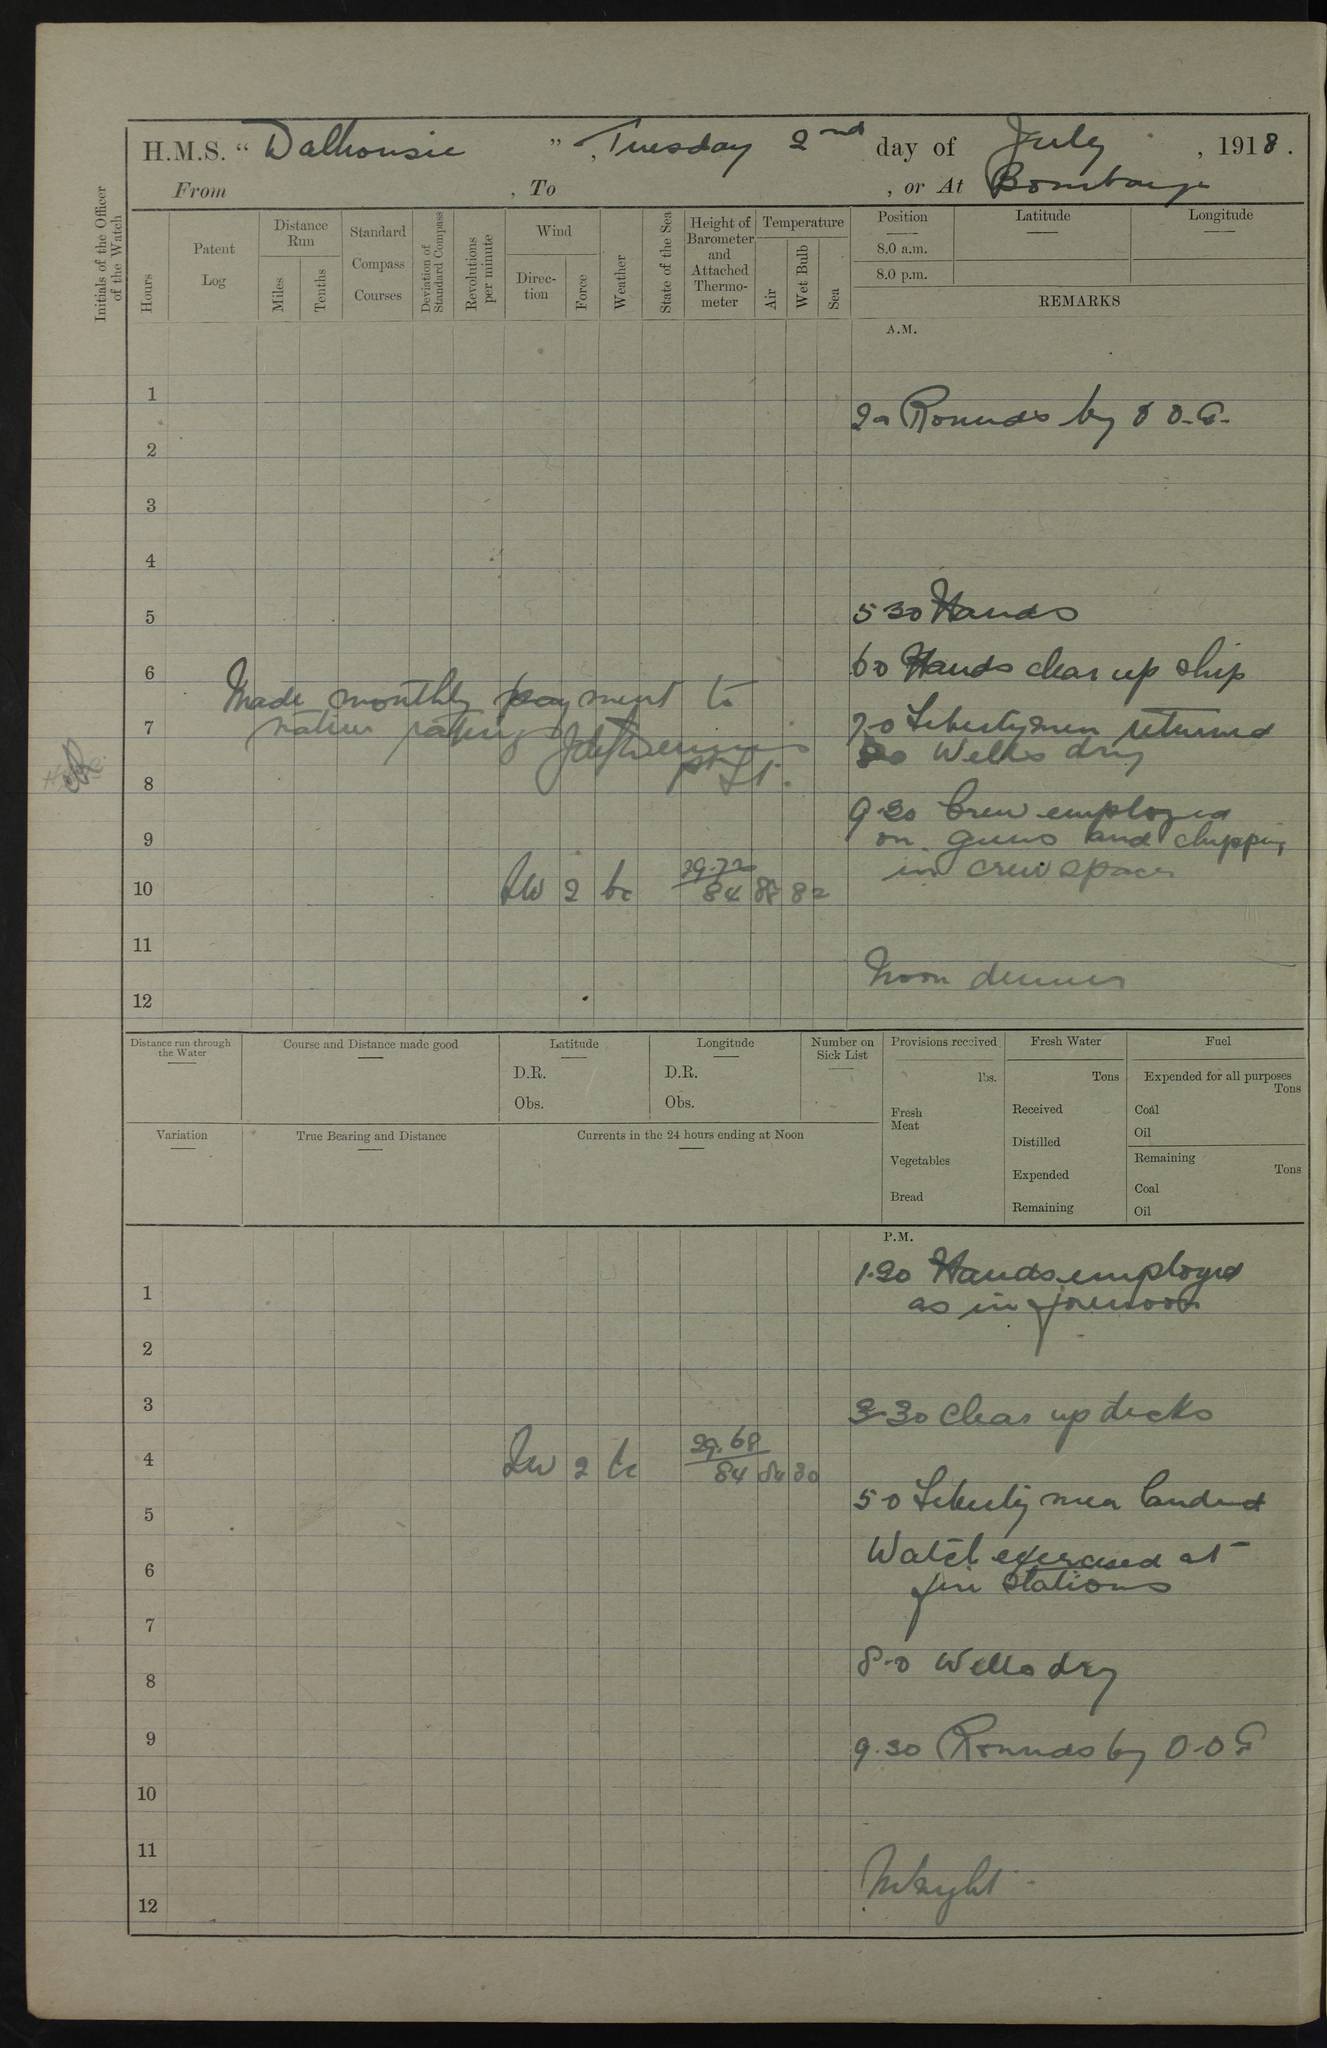 H.M.S. “ Dalhousie ” , Tuesday 2nd day of July , 1918 .
From , To , or At Bombay
Initials of the Officer of the Watch
Hours
Patent Log
Distance Run
Miles
Tenths
Standard Compass Courses
Deviation of Standard Compass
Revolutions per minute
Wind
Direc-tion
Force
Weather
State of the Sea
Height of Barometer and Attached Thermo-meter
Temperature
Air
Wet Bulb
Sea
Position Latitude Longitude
8.0 a.m.
8.0 p.m.
REMARKS
A.M.
1
2 Rounds by O.
2
3
4
5 30 Hands
5
6 0 Hands clear up ship
6
Made monthly payment to
native ratings
7 0 Libertymen returned
7
8 0 Wells dry
8
9 30 Crew employed
on guns and chipping
9
in crew space
10 SW 2 bc 29.72 84 88 82
11
Noon dinner
12
Distance run through the Water
Course and Distance made good
Latitude
D.R.
Obs.
Longitude
D.R.
Obs.
Number on Sick List
Provisions received
lbs.
Fresh Meat
Vegetables
Bread
Fresh Water
Tons
Received
Distilled
Expended
Remaining
Fuel
Expended for all purposes
Tons
Coal
Oil
Remaining
Tons
Coal
Oil
Variation
True Bearing and Distance
Currents in the 24 hours ending at Noon
P.M.
1.20 Hands employed
1
as in forenoon
2
3
3-30 Clear up decks
4 SW 2 bc 29.68 84 84 80
5-0 Liberty men landed
5
Watch exercised at
6
fire stations
7
8-0 Wells dry
8
9
9.30 Rounds by O.O.
10
11
12